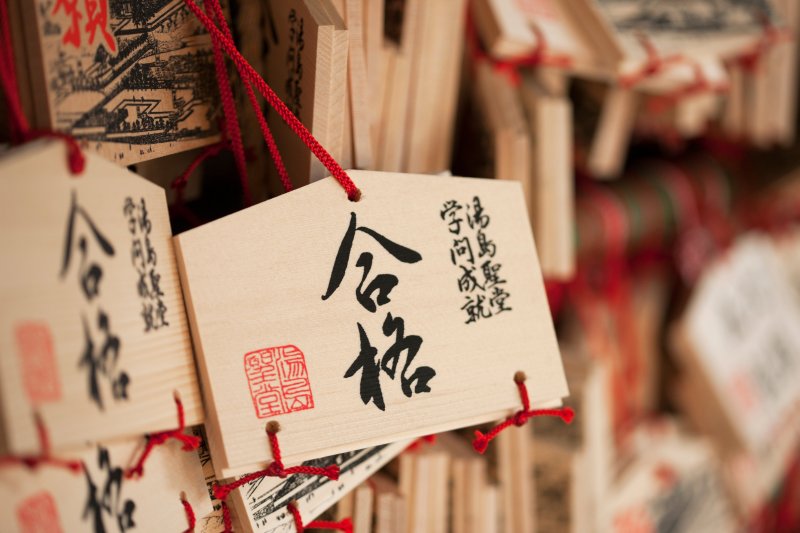 願
湯島聖堂
学問成就
合格
湯島聖堂
学問成就
合格
湯島
聖堂